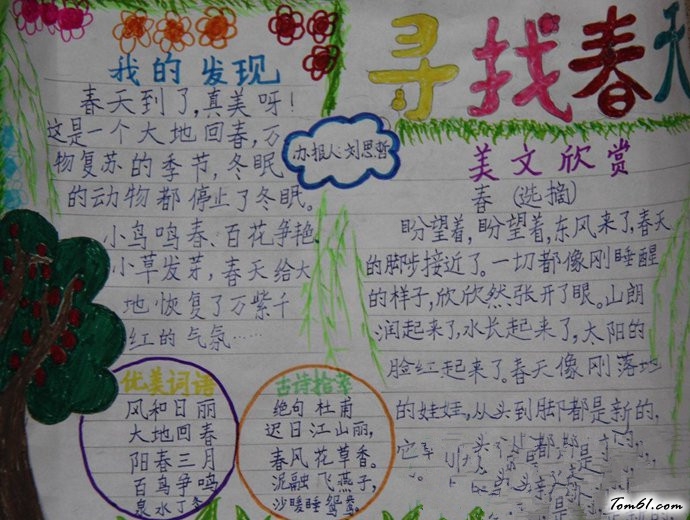 寻找春天
我的发现
春天到了,真美呀!
这是一个大地回春,万
物复苏的季节,冬眠
的动物都停止了冬眠。
小鸟鸣春、百花争艳
小草发芽,春天给大
地恢复了万紫千
红的气氛……
办报人:刘思哲
美文欣赏
春(选摘)
盼望着,盼望着,东风来了,春天
的脚步接近了。一切都像刚睡醒
的样子,欣欣然张开了眼。山朗
润起来了,水长起来了,太阳的
脸红起来了。春天像刚落地
的娃娃,从头到脚都是新的,
它
优美词语
风和日丽
大地回春
阳春三月
百鸟争鸣
泉水丁冬
古诗拾零
绝句 杜甫
迟日江山丽,
春风花草香。
泥融飞燕子,
沙暖睡鸳鸯。
Tom61.com